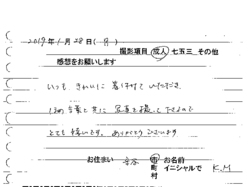 2019年1月28日(月)
撮影項目 成人 七五三 その他
感想をお願いします
いつも きれいに 着付けて いただき
ほめ言葉と共に 写真を撮って下さるので
とても 嬉しいです。ありがとうございます
お住まい 市 お名前
町 イニシャルで K.M
村